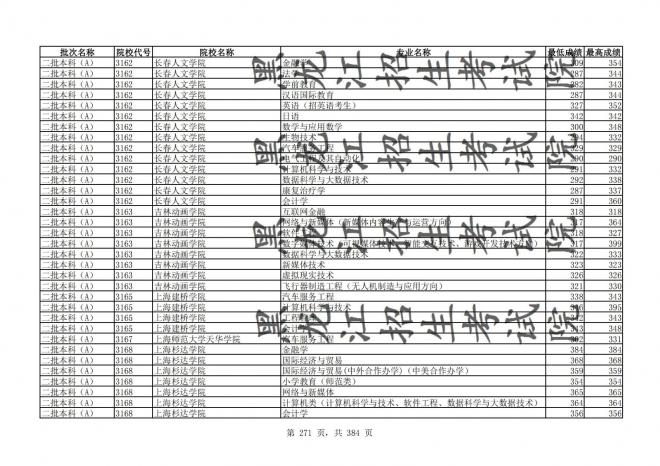 批次名称 院校代号 院校名称 专业名称 最低成绩 最高成绩
二批本科（A） 3162 长春人文学院 金融学 309 354
二批本科（A） 3162 长春人文学院 法学 287 344
二批本科（A） 3162 长春人文学院 学前教育 282 343
二批本科（A） 3162 长春人文学院 汉语国际教育 287 344
二批本科（A） 3162 长春人文学院 英语（招英语考生） 327 352
二批本科（A） 3162 长春人文学院 日语 342 342
二批本科（A） 3162 长春人文学院 数学与应用数学 300 348
二批本科（A） 3162 长春人文学院 生物技术 294 332
二批本科（A） 3162 长春人文学院 汽车服务工程 329 329
二批本科（A） 3162 长春人文学院 电气工程及其自动化 290 290
二批本科（A） 3162 长春人文学院 计算机科学与技术 291 332
二批本科（A） 3162 长春人文学院 数据科学与大数据技术 292 338
二批本科（A） 3162 长春人文学院 康复治疗学 287 337
二批本科（A） 3162 长春人文学院 会计学 291 360
二批本科（A） 3163 吉林动画学院 互联网金融 318 318
二批本科（A） 3163 吉林动画学院 网络与新媒体（新媒体内容生产与运营方向） 317 364
二批本科（A） 3163 吉林动画学院 软件工程 318 327
二批本科（A） 3163 吉林动画学院 数字媒体技术（可视媒体技术、智能交互技术、游戏开发技术方向） 317 399
二批本科（A） 3163 吉林动画学院 数据科学与大数据技术 322 333
二批本科（A） 3163 吉林动画学院 新媒体技术 323 323
二批本科（A） 3163 吉林动画学院 虚拟现实技术 326 326
二批本科（A） 3163 吉林动画学院 飞行器制造工程（无人机制造与应用方向） 321 331
二批本科（A） 3165 上海建桥学院 汽车服务工程 338 343
二批本科（A） 3165 上海建桥学院 计算机科学与技术 395
二批本科（A） 3165 上海建桥学院 工程 342 343
二批本科（A） 3165 上海建桥学院 会计学 343 348
二批本科（A） 3167 上海师范大学天华学院 汽车服务工程 331
二批本科（A） 3168 上海杉达学院 金融学 384 384
二批本科（A） 3168 上海杉达学院 国际经济与贸易 368 368
二批本科（A） 3168 上海杉达学院 国际经济与贸易(中外合作办学)（中美合作办学） 359 359
二批本科（A） 3168 上海杉达学院 小学教育（师范类） 354 354
二批本科（A） 3168 上海杉达学院 网络与新媒体 365 365
二批本科（A） 3168 上海杉达学院 计算机类（计算机科学与技术、软件工程、数据科学与大数据技术） 364 364
二批本科（A） 3168 上海杉达学院 会计学 356 356
黑龙江招生考试院
黑龙江招生考试院
黑龙江招生考试院
黑龙江招生考试院
第 271 页，共 384 页